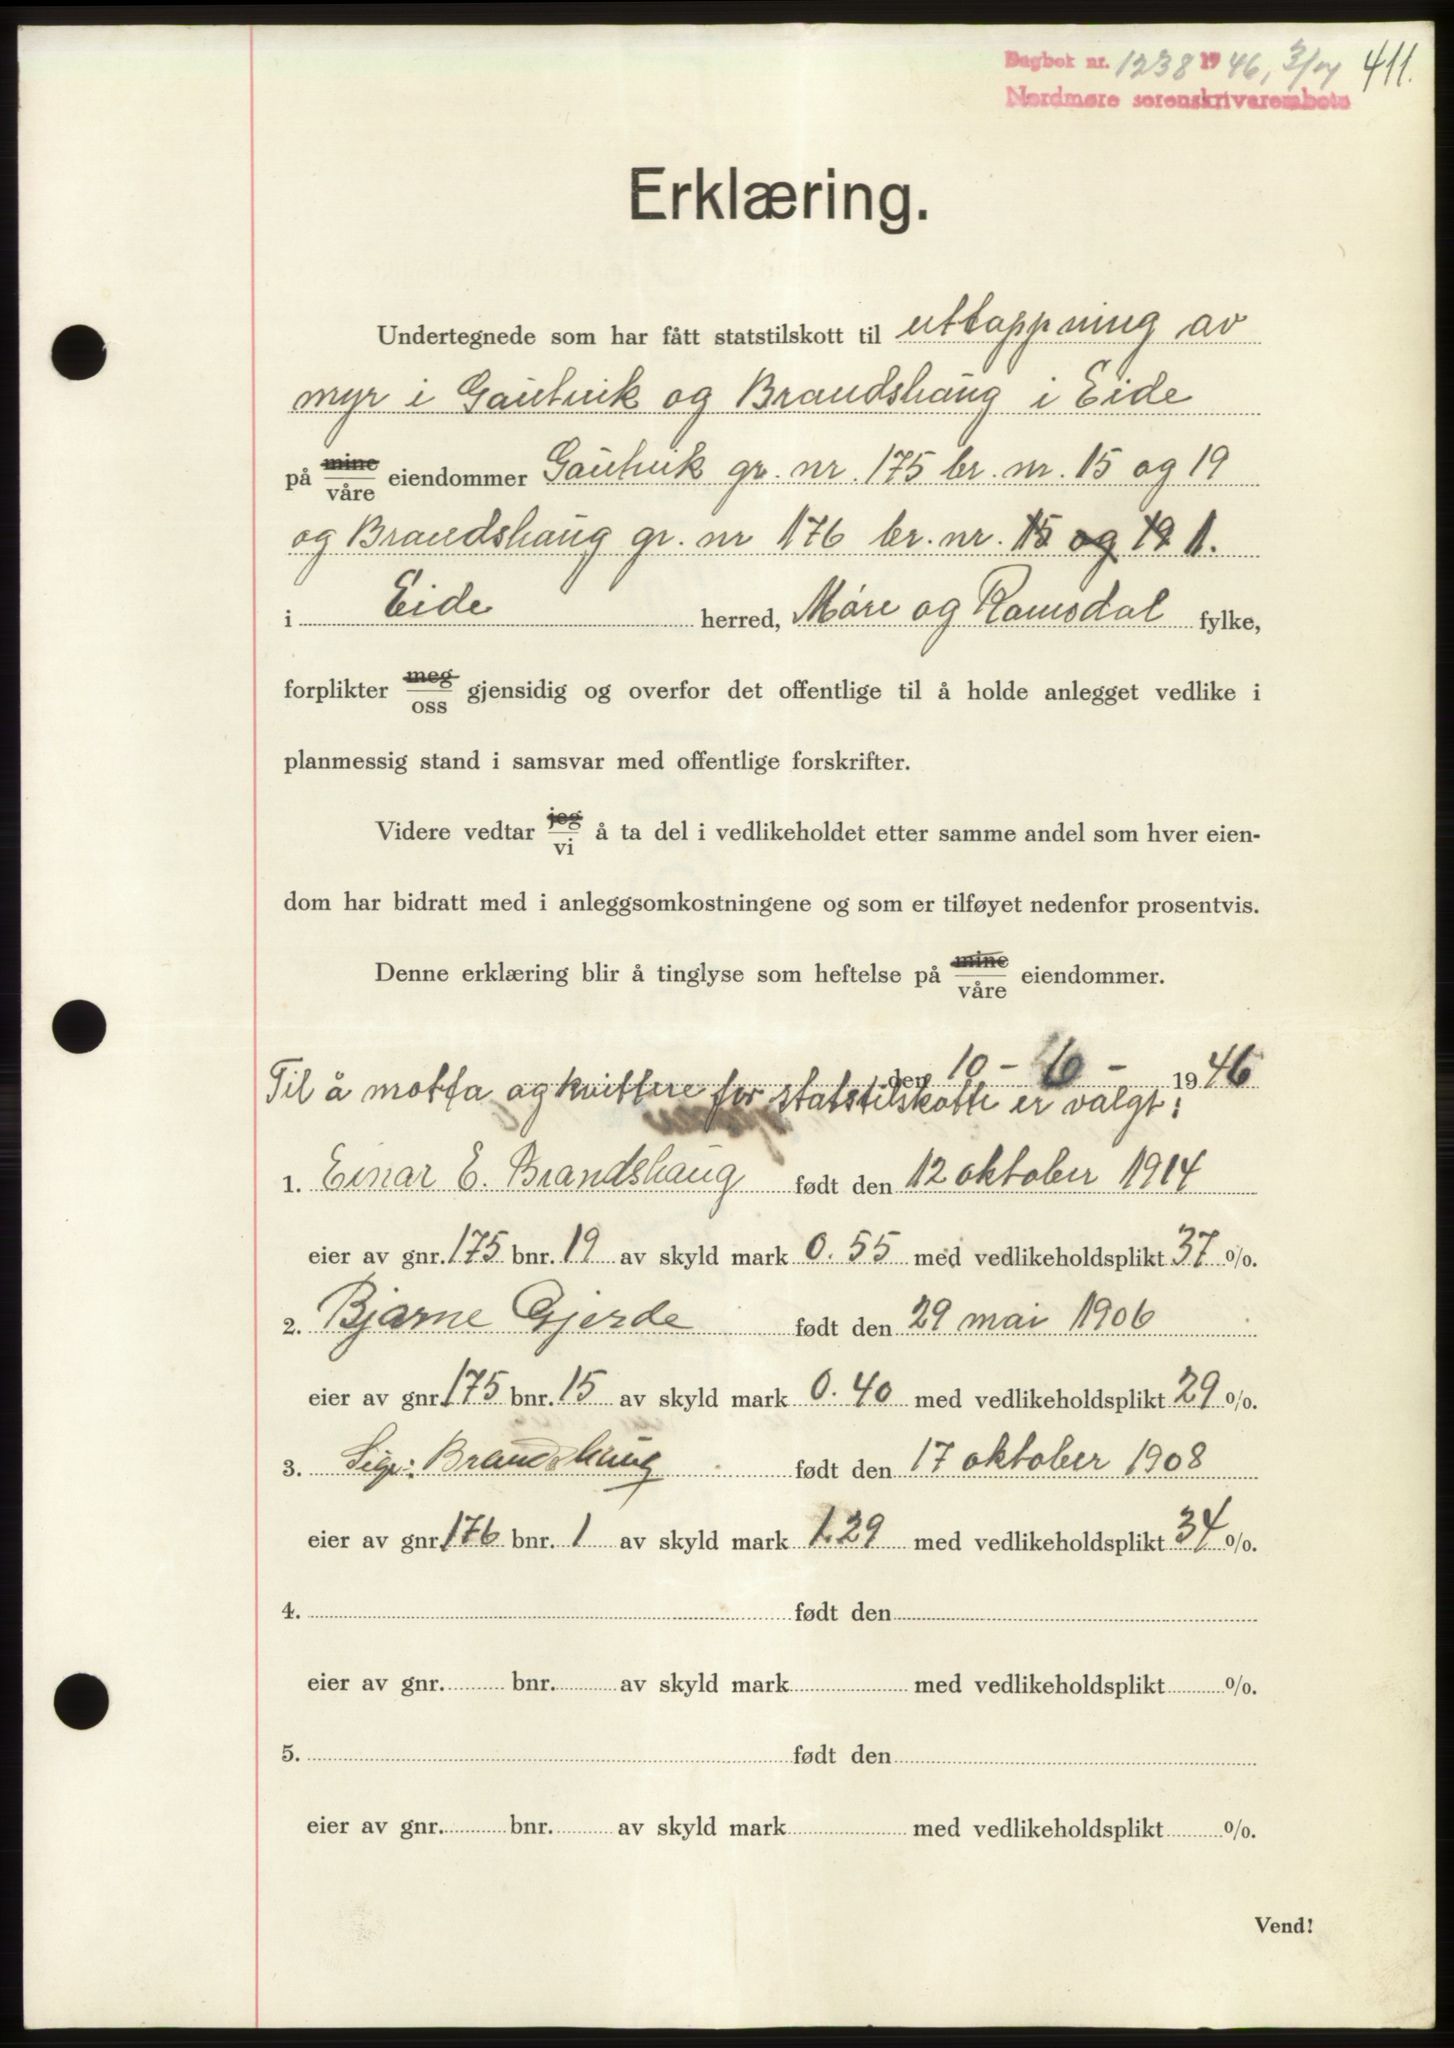 Dagbok nr. 1238 1946, 3/7 411.
Nordmøre sorenskriverembete
Erklæring.
Undertegnede som har fått statstilskott til uttappning av
myr i Gautvik og Brandshaug i Eide
på mine/våre eiendommer Gautvik gr. nr. 175 br. nr. 15 og 19
og Brandshaug gr. nr 176 br. nr. 15 og 19 1.
i Eide herred, Møre og Romsdal fylke,
forplikter meg/oss gjensidig og overfor det offentlige til å holde anlegget vedlike i
planmessig stand i samsvar med offentlige forskrifter.
Videre vedtar jeg/vi å ta del i vedlikeholdet etter samme andel som hver eien-
dom har bidratt med i anleggsomkostningene og som er tilføyet nedenfor prosentvis.
Denne erklæring blir å tinglyse som heftelse på mine/våre eiendommer.
den 10 - 6 - 1946
Til å motta og kvittere for statstilskotte er valgt:
1. Einar E. Brandshaug født den 12 oktober 1914
eier av gnr. 175 bnr. 19 av skyld mark 0.55 med vedlikeholdsplikt 37 %.
2. Bjarne Gjerde født den 29 mai 1906
eier av gnr. 175 bnr. 15 av skyld mark 0.40 med vedlikeholdsplikt 29 %.
3. Sigr: Brandshaug født den 17 oktober 1908
eier av gnr. 176 bnr. 1 av skyld mark 1.29 med vedlikeholdsplikt 34 %.
4. født den
eier av gnr. bnr. av skyld mark med vedlikeholdsplikt %.
5. født den
eier av gnr. bnr. av skyld mark med vedlikeholdsplikt %.
Vend!